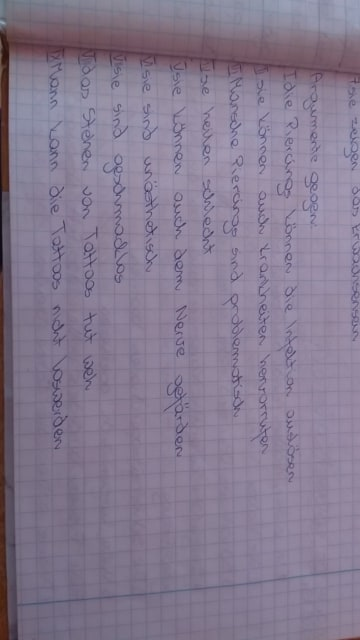 sie zeigen den
Argumente gegen
I die Piercings können die Infektion auslösen
II sie können auch Krankheiten herrorrufen
III Mansche Piercings sind problematisch
IV sie heilen schlecht
V sie können auch dem Nerve gefärden
V sie sind unästhetisch
VI sie sind geschmadlos
VII das Stehen von Tattoos tut weh
V Mann kann die Tattoos nicht loswerden